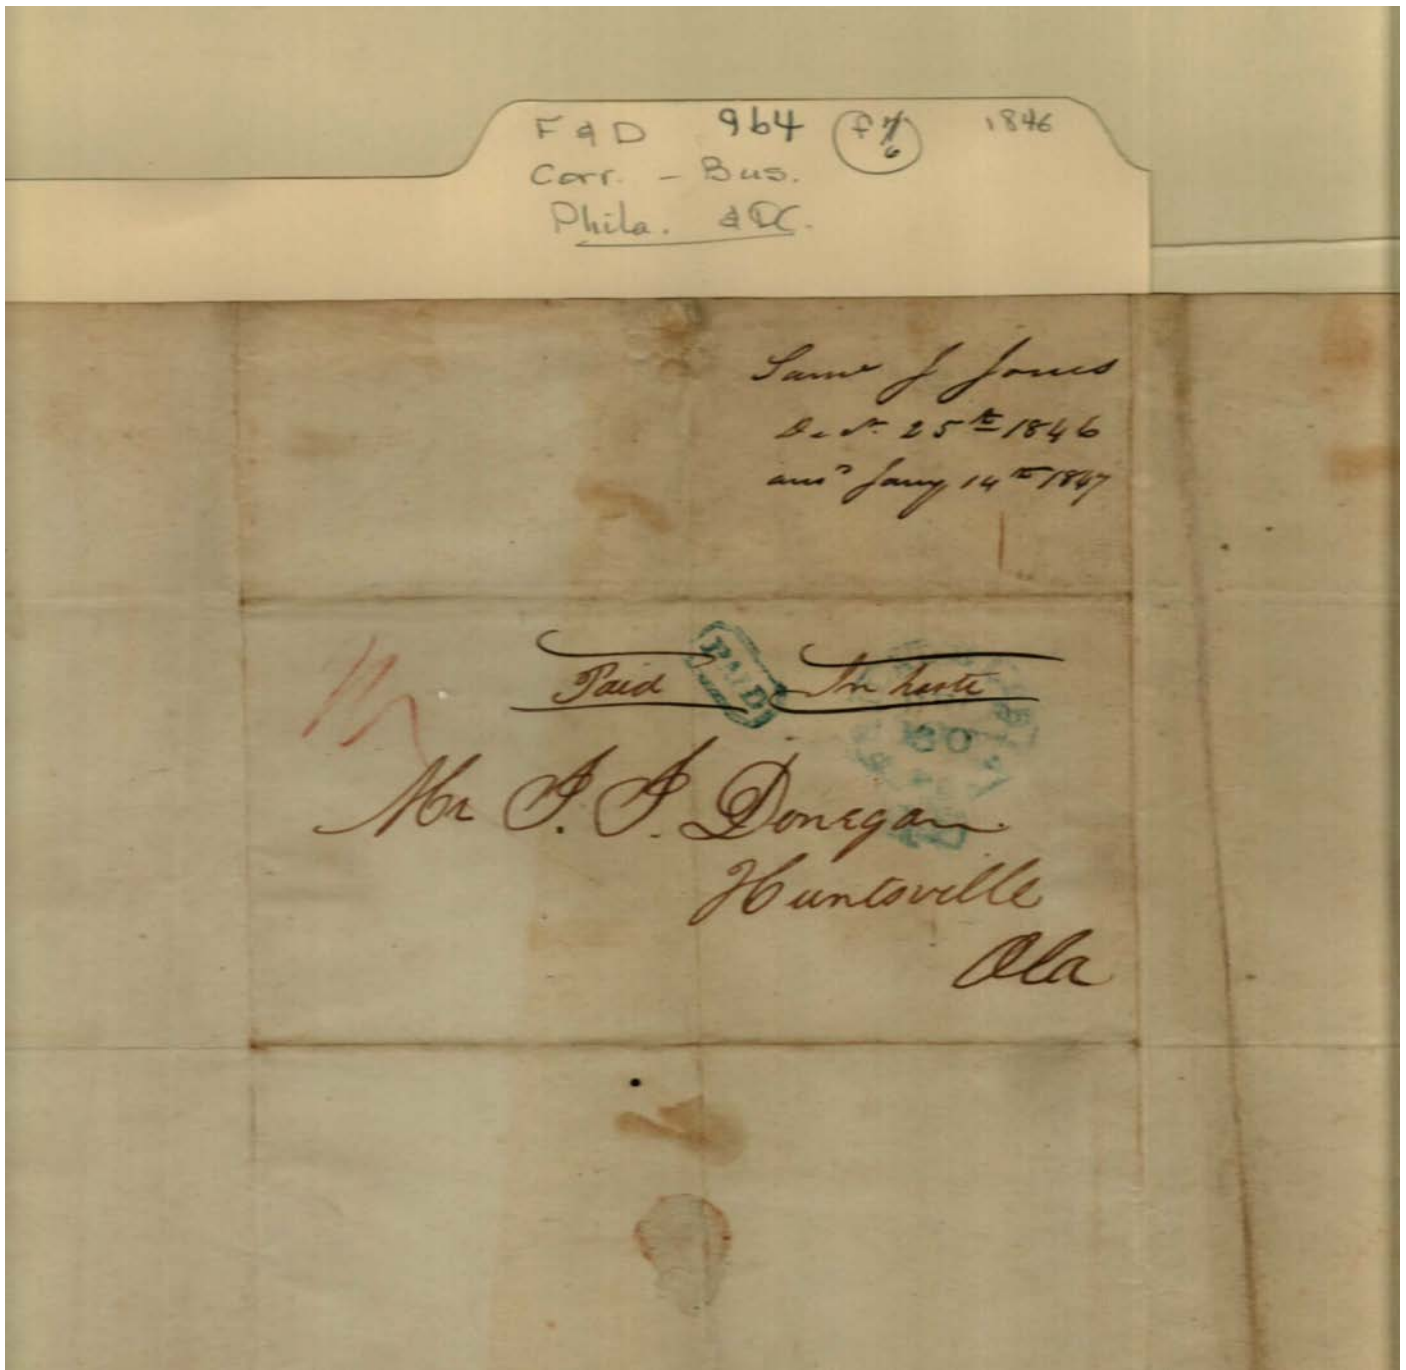 F & D 964 f 7/6 1846
Corr. - Bus.
Phila. & DC.
Saml J Jones
Decr. 25th 1846
ansd Jany 14th 1847
Paid PAID In haste
30
Mr J. J. Donegan
Huntsville
Ala